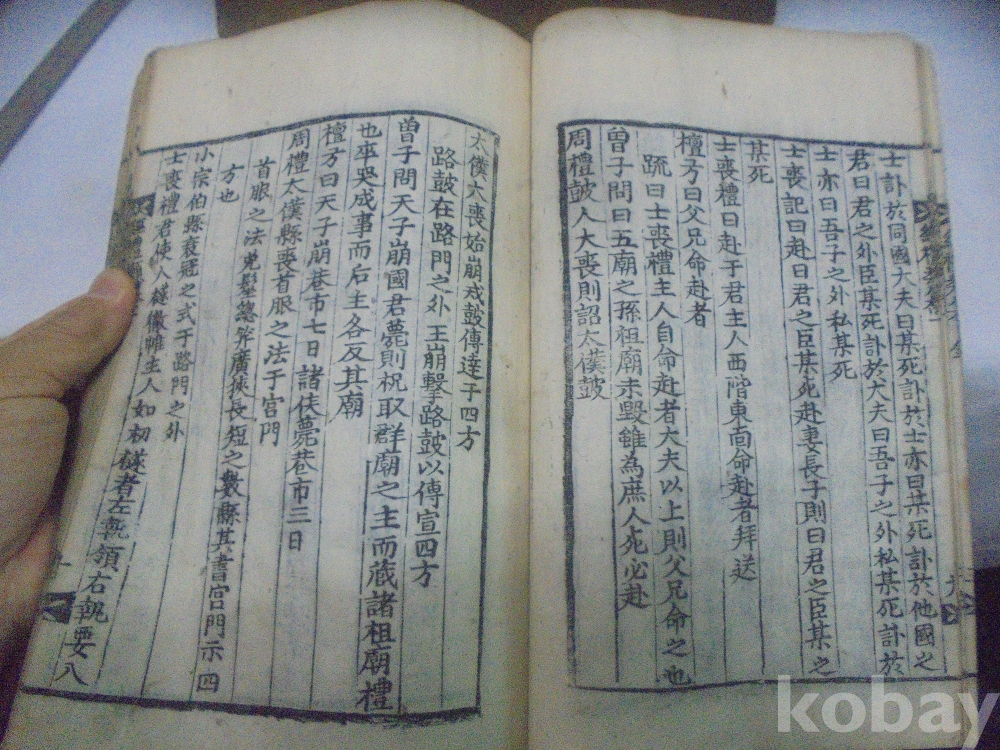 士訃於同國大夫曰某死訃於士亦曰某死訃於他國之
君曰君之外臣某死訃於大夫曰吾子之外私某死訃於
士亦曰吾子之外私某死
士喪記曰赴曰君之臣某死赴妻長子則曰君之臣某之
某死
士喪禮曰赴于君主人西階東面命赴者拜送
檀弓曰父兄命赴者
疏曰士喪禮主人自命赴者大夫以上則父兄命之也
曾子問曰五廟之孫祖廟未毀雖為庶人死必赴
周禮皷人大喪則詔太僕皷
太僕大喪始崩戒皷傳達于四方
路鼓在路門之外王崩擊路皷以傳宣四方
曾子問天子崩國君薨則祝取群廟之主而藏諸祖廟禮
也卒哭成事而后主各反其廟
檀弓曰天子崩巷市七日諸侯薨巷市三日
周禮太僕縣喪首服之法于宮門
首服之法免髽總笄廣狹長短之數縣其書宮門示四
方也
小宗伯縣衰冠之式于路門之外
士喪禮君使人襚徹帷主人如初襚者左執領右執要入
kobay